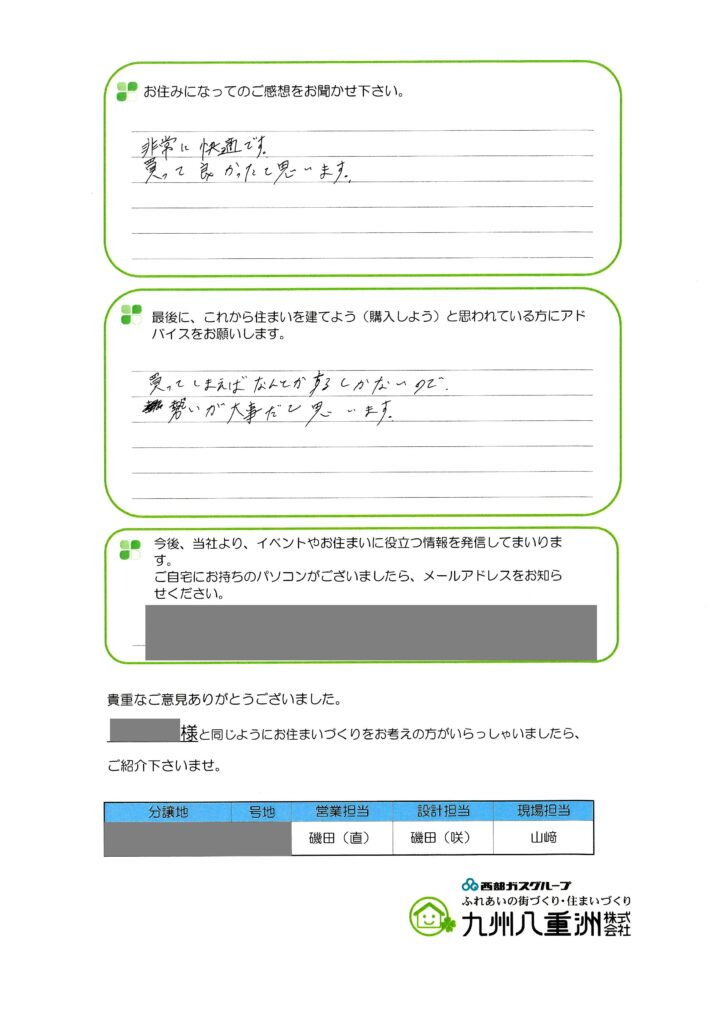 お住みになってのご感想をお聞かせ下さい。
非常に快適です。
買って良かったと思います。
最後に、これから住まいを建てよう（購入しよう）と思われている方にアド
バイスをお願いします。
買ってしまえばなんとかするしかないので、
勢いが大事だと思います。
今後、当社より、イベントやお住まいに役立つ情報を発信してまいりま
す。
ご自宅にお持ちのパソコンがございましたら、メールアドレスをお知ら
せください。
貴重なご意見ありがとうございました。
様と同じようにお住まいづくりをお考えの方がいらっしゃいましたら、
ご紹介下さいませ。
分譲地 号地 営業担当 設計担当 現場担当
磯田（直） 磯田（咲） 山﨑
西部ガスグループ
ふれあいの街づくり・住まいづくり
九州八重洲株式会社